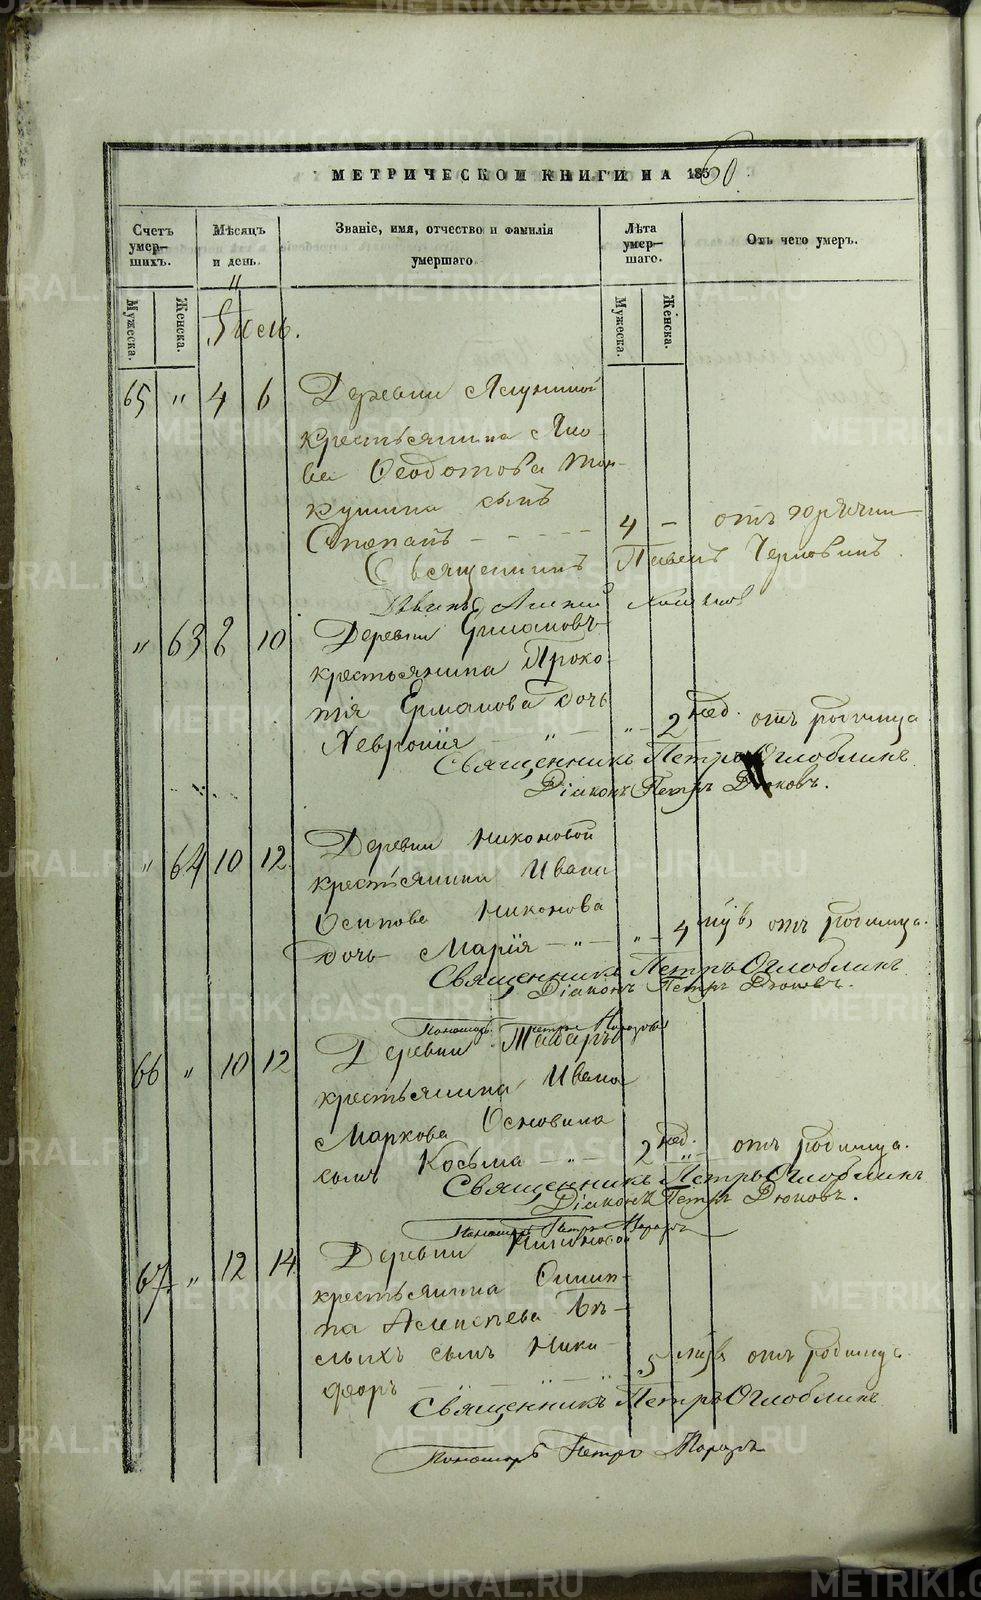 МЕТРИЧЕСКОЙ КНИГИ НА 1860.
Счетъ умер— шихъ.
Мѣсяцъ и день.
Званіе, имя, отчество и фамилія умершаго
Лѣта умер— шаго.
Отъ чего умеръ.
Мужеска.
Женска.
Мужеска.
Женска.
Іюль.
65 " 4 6 Деревни
крестьянина
ва Ѳеодотова
сынъ
Степанъ - - - - - 4 - отъ горячки
Священникъ Павелъ
" 63 8 10 Деревни
крестьянина Проко-
пія Ермакова дочь
Хевронія " - 2 нед. отъ родимца
Священникъ Петръ Оглоблинъ
Діаконъ Петръ Дюковъ.
" 64 10 12. Деревни Никоновой
крестьянина Ивана
Осипова Никонова
дочь Марія - " - " - 4 отъ родимца.
Священникъ Петръ Оглоблинъ
Діаконъ Петръ Дюковъ.
Пономарь Петръ
66 " 10 12 Деревни
крестьянина Ивана
Маркова Основина
сынъ Косьма - " - 2 нед. " отъ родимца.
Священникъ Петръ Оглоблинъ
Діаконъ Петръ Дюковъ.
Пономарь Петръ
67 " 12 14 Деревни Никоновой
крестьянина
па Алексѣева Бѣ-
лыхъ сынъ Ники-
форъ 5 отъ родимца.
Священникъ Петръ Оглоблинъ
Пономарь Петръ
METRIKI.GASO-URAL.RU